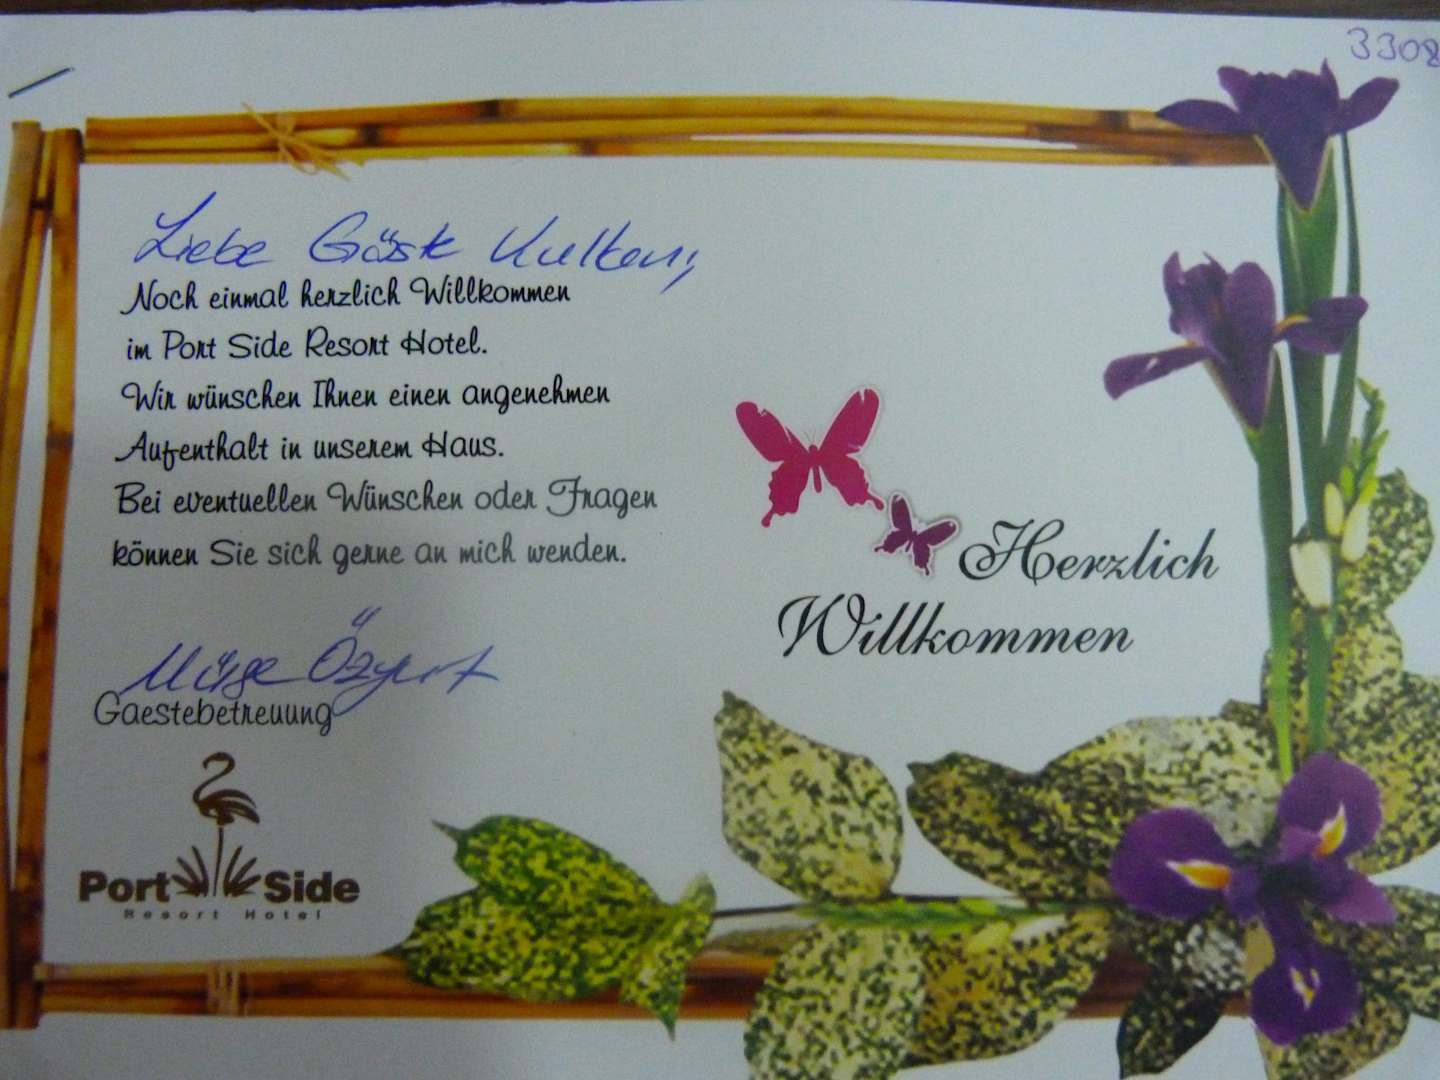 3308
Liebe Gäste Kulken,
Noch einmal herzlich Willkommen
im Port Side Resort Hotel.
Wir wünschen Ihnen einen angenehmen
Aufenthalt in unserem Haus.
Bei eventuellen Wünschen oder Fragen
können Sie sich gerne an mich wenden.
Herzlich
Willkommen
Gaestebetreuung
Port Side
Resort Hotel